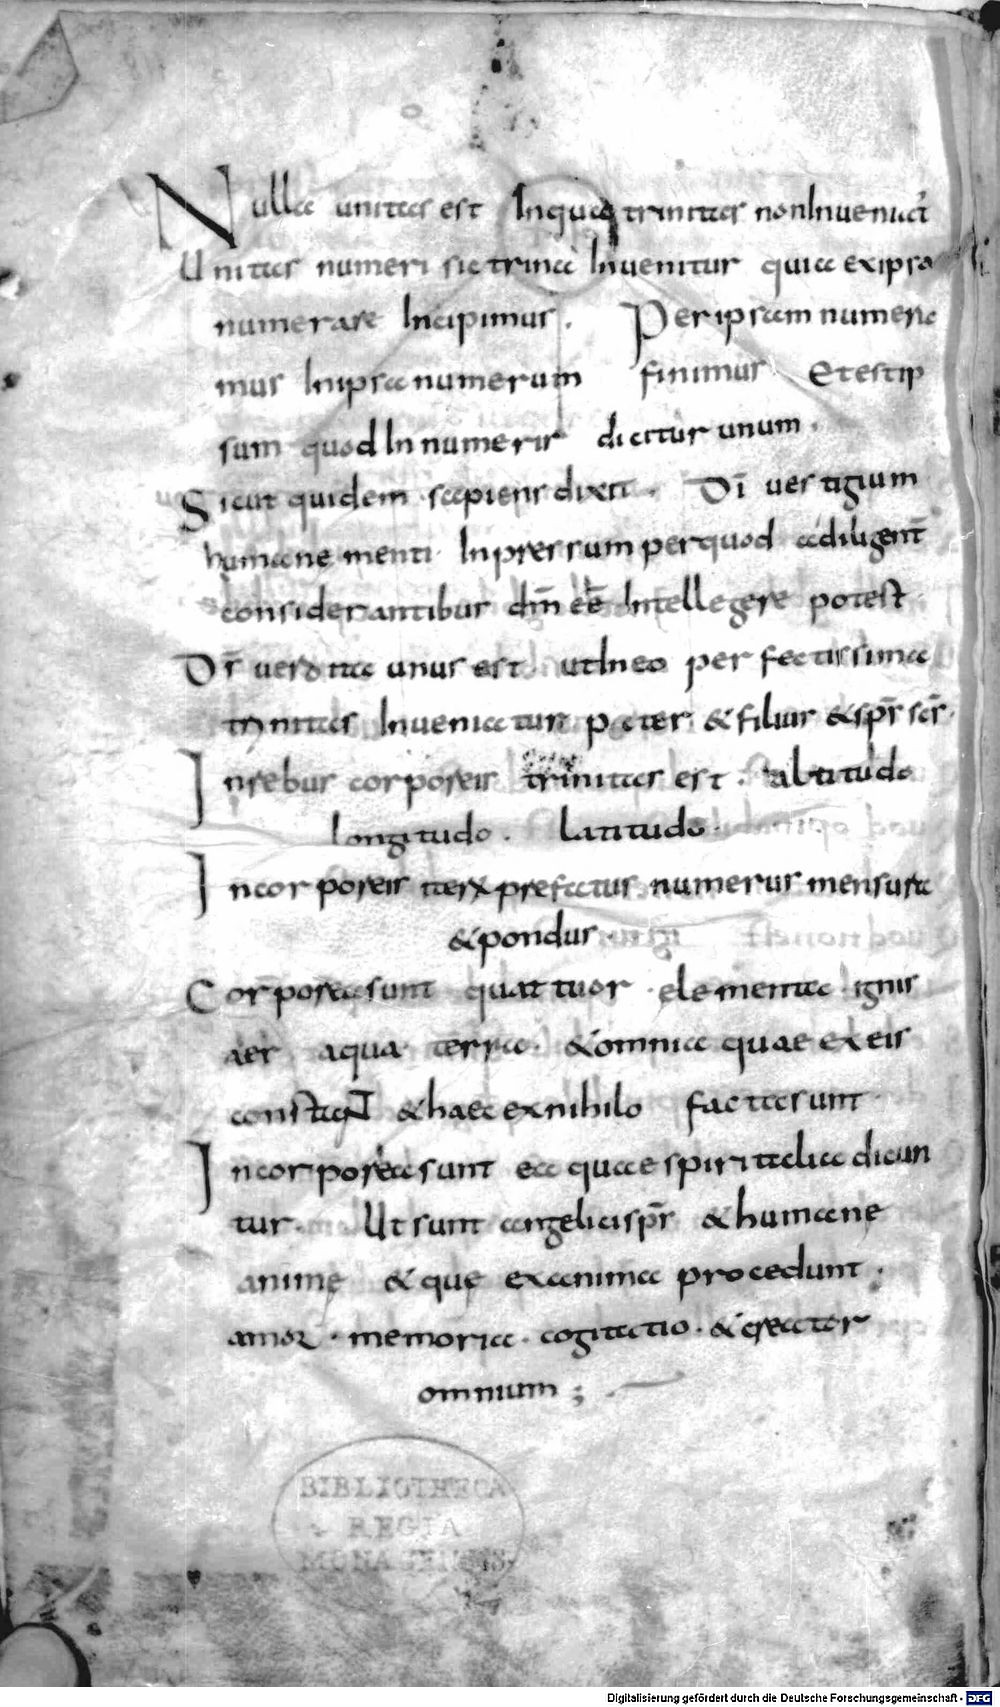 Nulla unitas est Inqua trinitas nonInueniat̄
Unitas numeri sic trina Inuenitur quia exipsa
numerare Incipimus. Per ipsam numera
mus Inipsa numerum finimus Et est ip
sum quod In numeris dicitur unum.
Sicut quidem sapiens dixit. Di ̄ uestigium
humane menti Inpressum perquod a diligent̄
considerantibus dm̄ eē Intellegere potest
Ds̄ uero ita unus est utIneo perfectissima
trinitas Inueniatur pater & filius & sp̄s sc̄s.
In rebus corporeis trinitas est. altitudo
longitudo. Latitudo.
Incorporeis prefatus numerus mensura
& pondus.
Corporea sunt quattuor elementa ignis
aer aqua terra & omnia quae ex eis
constant & haec exnihilo facta sunt
Incorporea sunt ea quae spiritalia dicun
tur. Ut sunt angelici sp̄s & humane
anime & que exanima procedunt.
amor. memoria. cogitatio. & creator
omnium;
BIBLIOTHECA
REGIA
MONACENSIS.
Digitalisierung gefördert durch die Deutsche Forschungsgemeinschaft - DFG